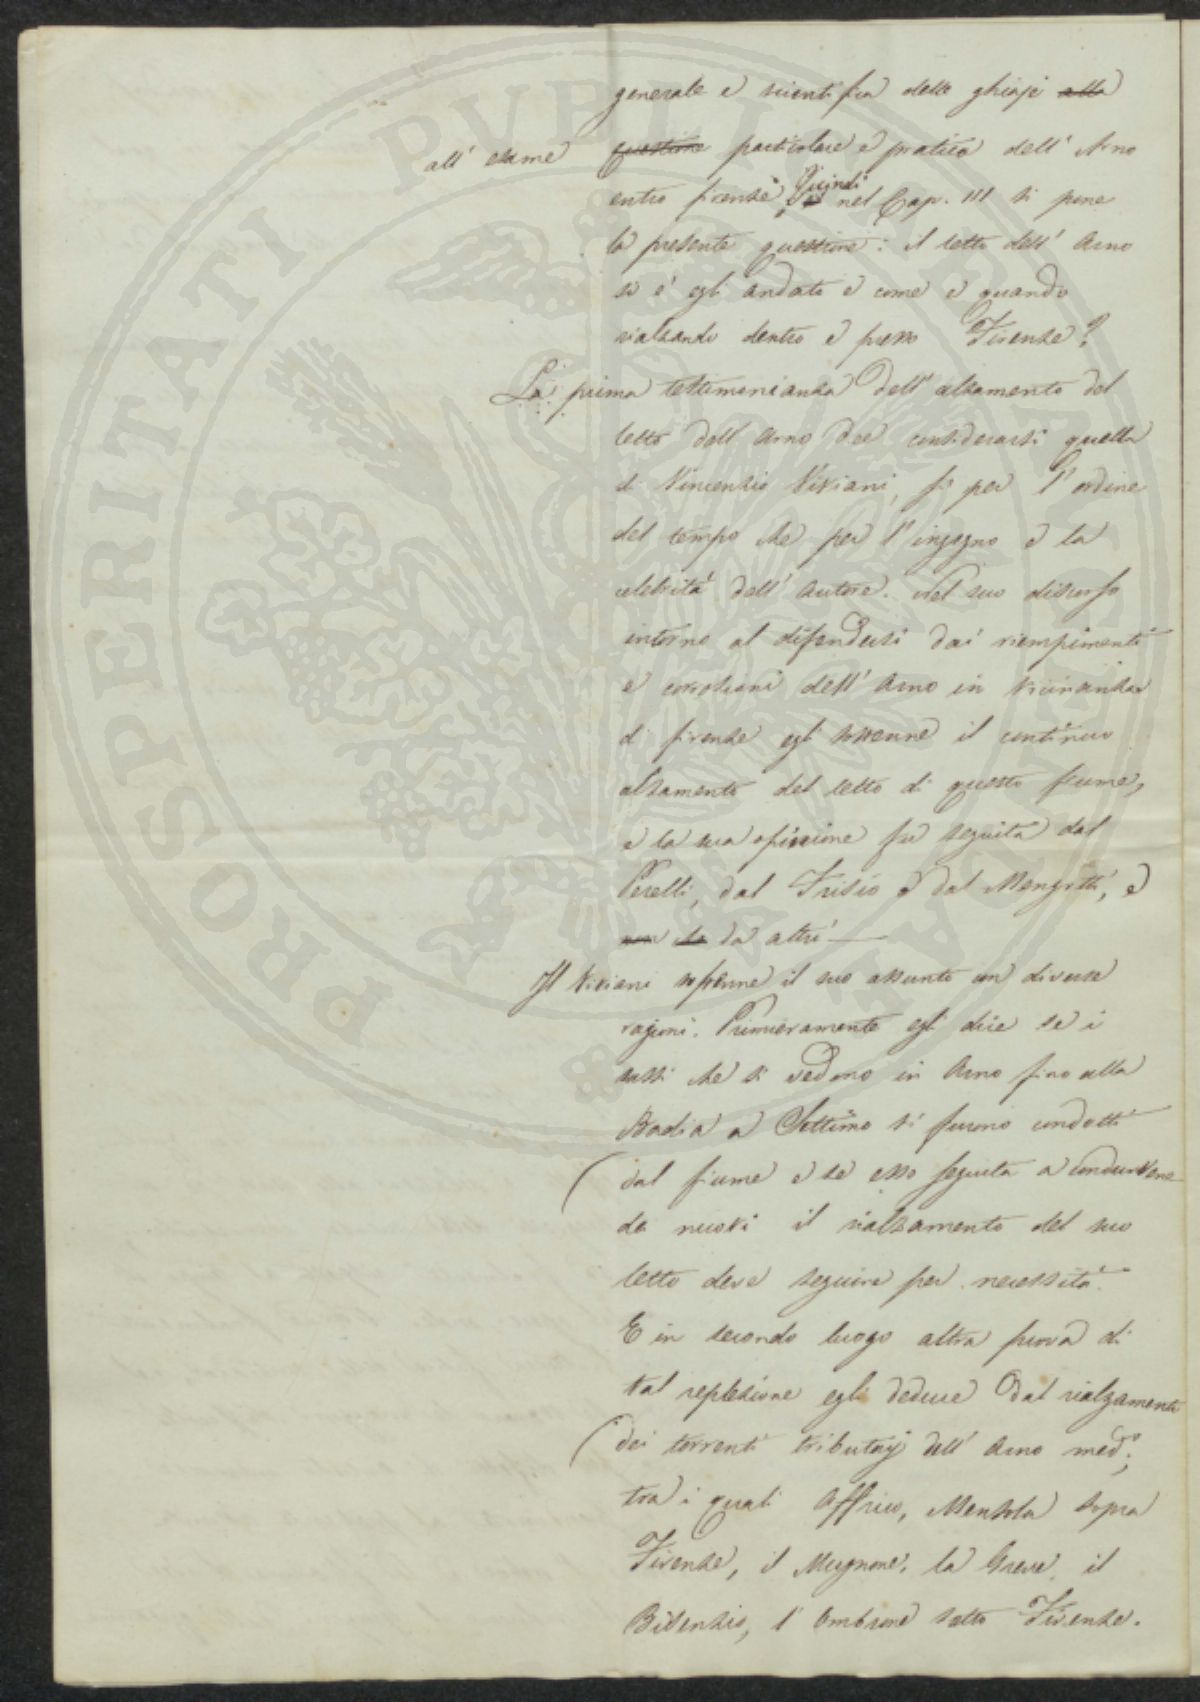 generale e scientifica delle ghiaje alla
all' esame questione particolare e pratica dell' Arno
entro firenze, Quindi nel Cap. III si pone
la presente questione: il letto dell' Arno
si è egli andato e come e quando
rialzando dentro e presso Firenze?
La prima testimonianza dell' alzamento del
letto dell' Arno dee considerarsi quella
di Vincenzio Viviani, sì per l' ordine
del tempo che per l' ingegno e la
celebrità dell' autore. Nel suo discorso
intorno al difendersi dai riempimenti
e corrosioni dell' Arno in vicinanza
di firenze egli sostenne il continuo
alzamento del letto di questo fiume,
e la sua opinione fu seguita dal
Perelli, dal Frisio e dal Mengotti, e
da altri —
Il Viviani sostenne il suo assunto con diverse
ragioni. Primieramente egli dice se i
sassi che si vedono in Arno fino alla
Badia a Settimo vi furono condotti
dal fiume e se esso seguita a condurvene
de nuovi il rialzamento del suo
letto deve seguire per necessità.
E in secondo luogo altra prova di
tal replezione egli deduce dal rialzamento
dei torrenti tributarj dell' Arno med.o;
tra i quali Affrico, Mensola sopra
Firenze, il Mugnone, la Greve, il
Bisenzio, l' Ombrone sotto Firenze.
PROSPERITATI PVBLICAE AVGENDAE